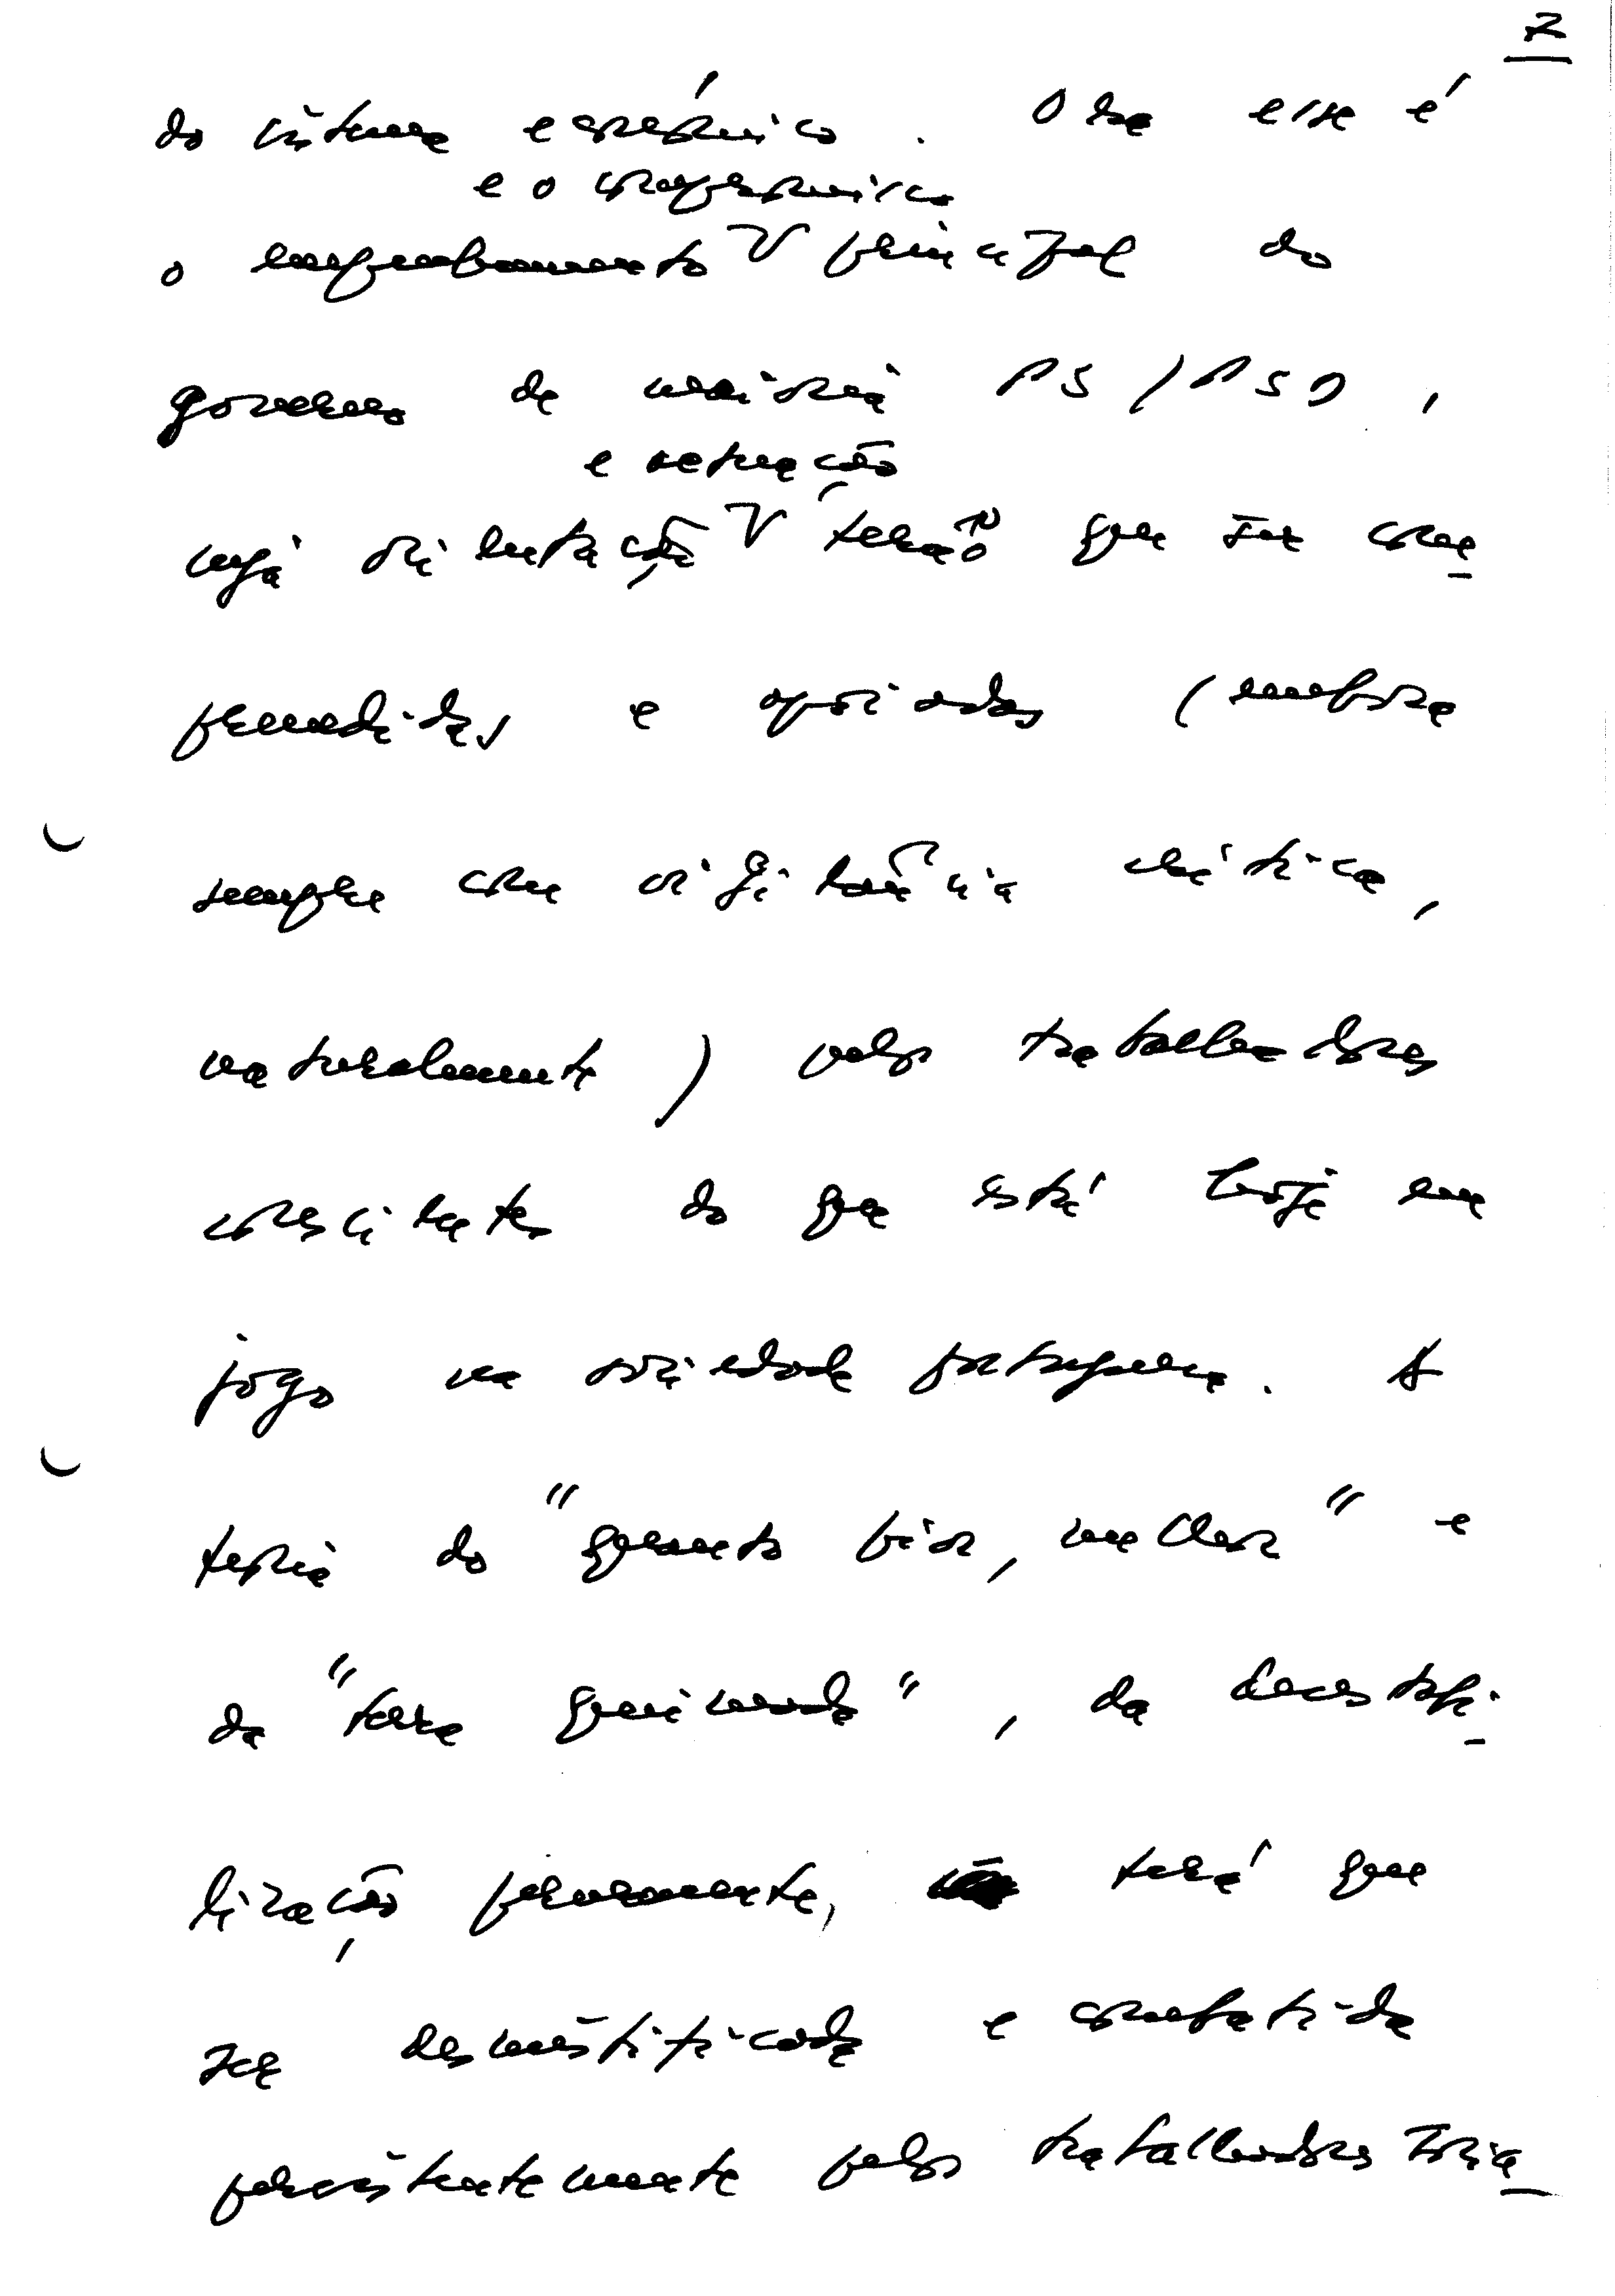 7
do sistema económico. Ora esse é
e o compromisso
o empenhamento V principal do
governo de maioria PS/PSD,
e actuação
cuja orientação V terão que ser com
preendidas e apoiadas (embora
sempre com vigilância crítica,
naturalmente) pelos trabalhadores
conscientes do que está hoje em
jogo na sociedade portuguesa. A
teoria do "quanto pior, melhor" e
da "terra queimada", da
lização permanente, terá que
ser desmistificada e combatida
persistentemente pelos trabalhadores socia